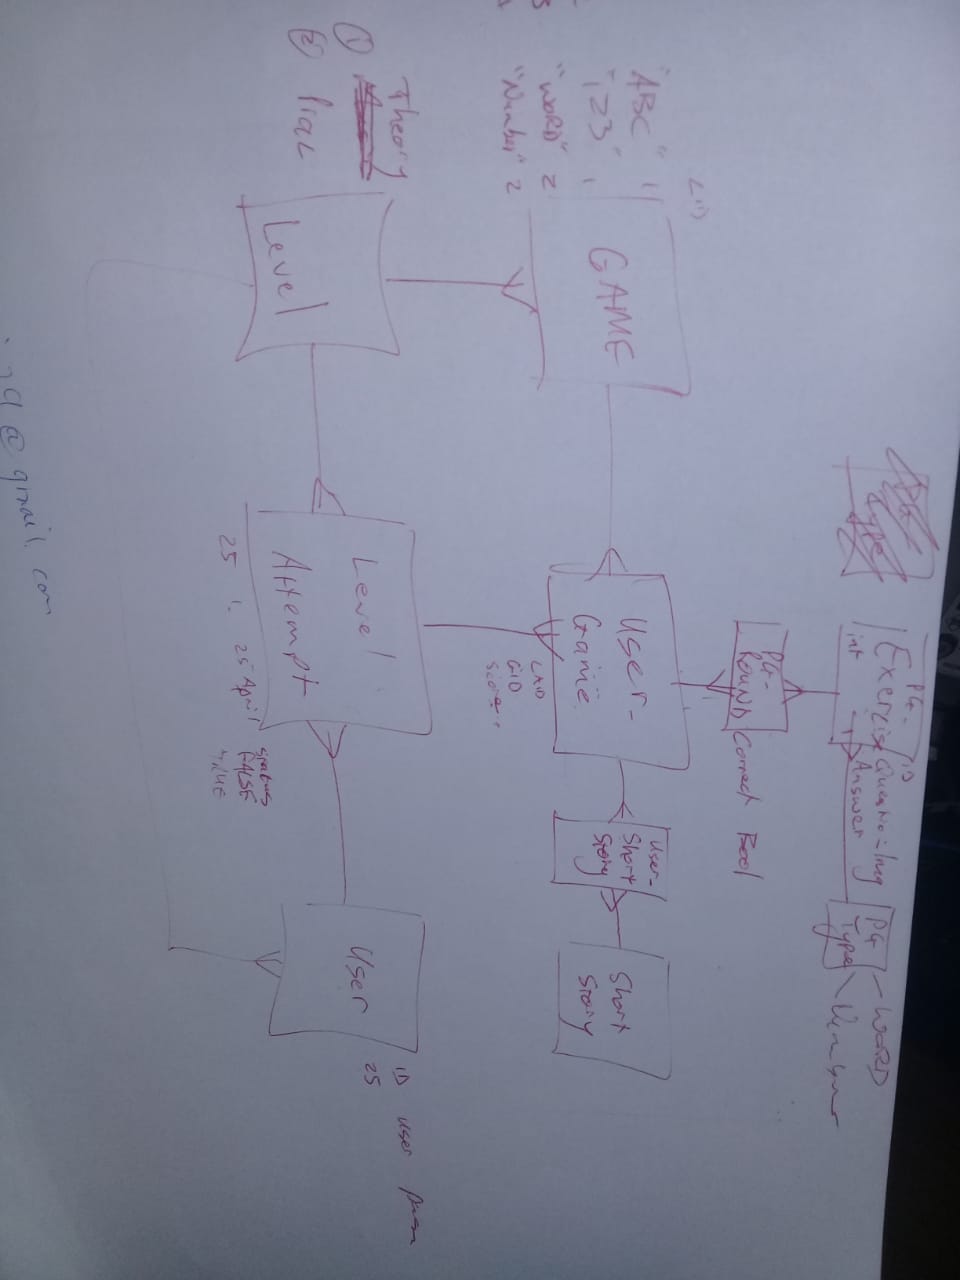 PG-
Exercise
int
ID
Question-Img
Answer
PG
Type
WORD
Number
PG-
ROUND
Correct Bool
LID
"ABC" 1
"123" 1
"WORD" 2
"Number" 2
GAME
User-
Game
LAID
GID
Score
User-
Short
Story
Short
Story
Theory
①
② Prac
Level
Level
Attempt
25 1 25 April
status
FALSE
TRUE
User
ID user
25
@gmail.com